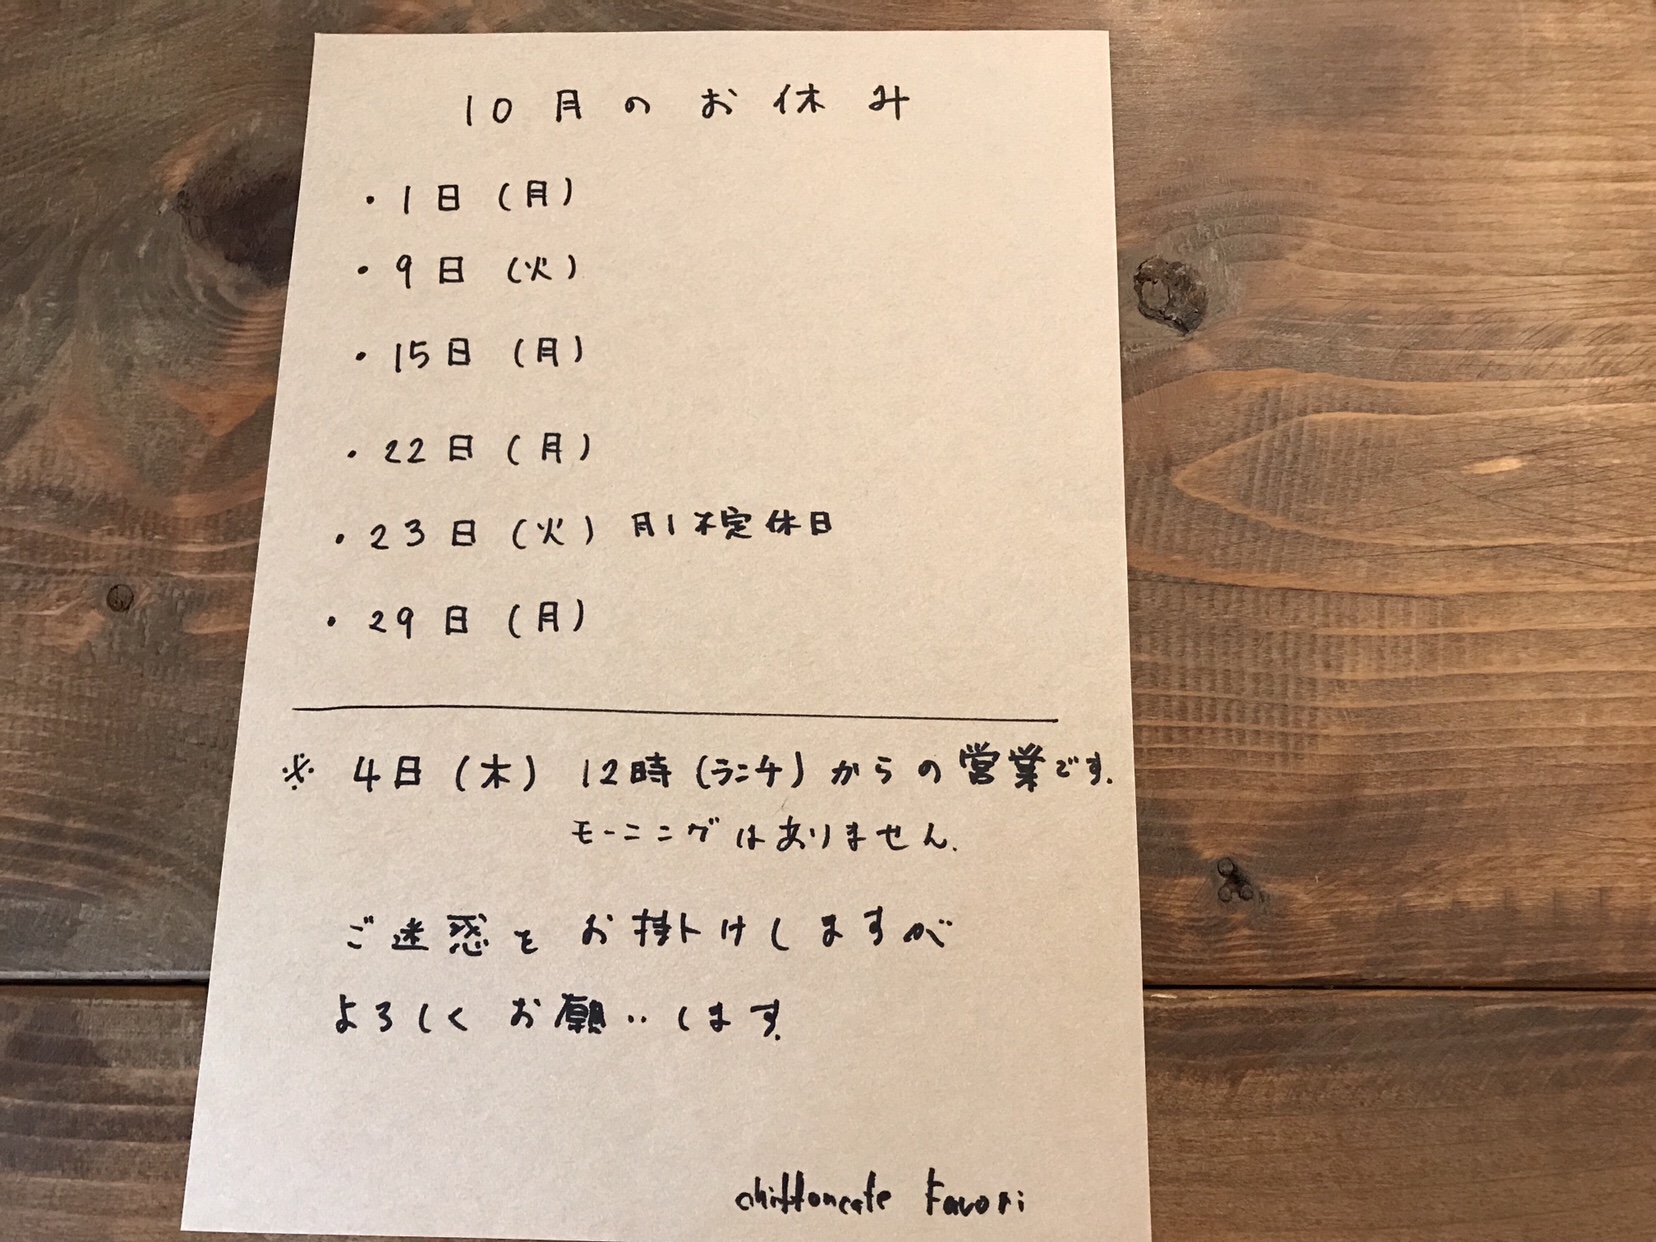 10月のお休み
・1日(月)
・9日(火)
・15日(月)
・22日(月)
・23日(火) 月1不定休日
・29日(月)
※ 4日(木) 12時(ランチ)からの営業です.
モーニングはありません.
ご迷惑をお掛けしますが
よろしくお願いします.
chiffoncafe Favori